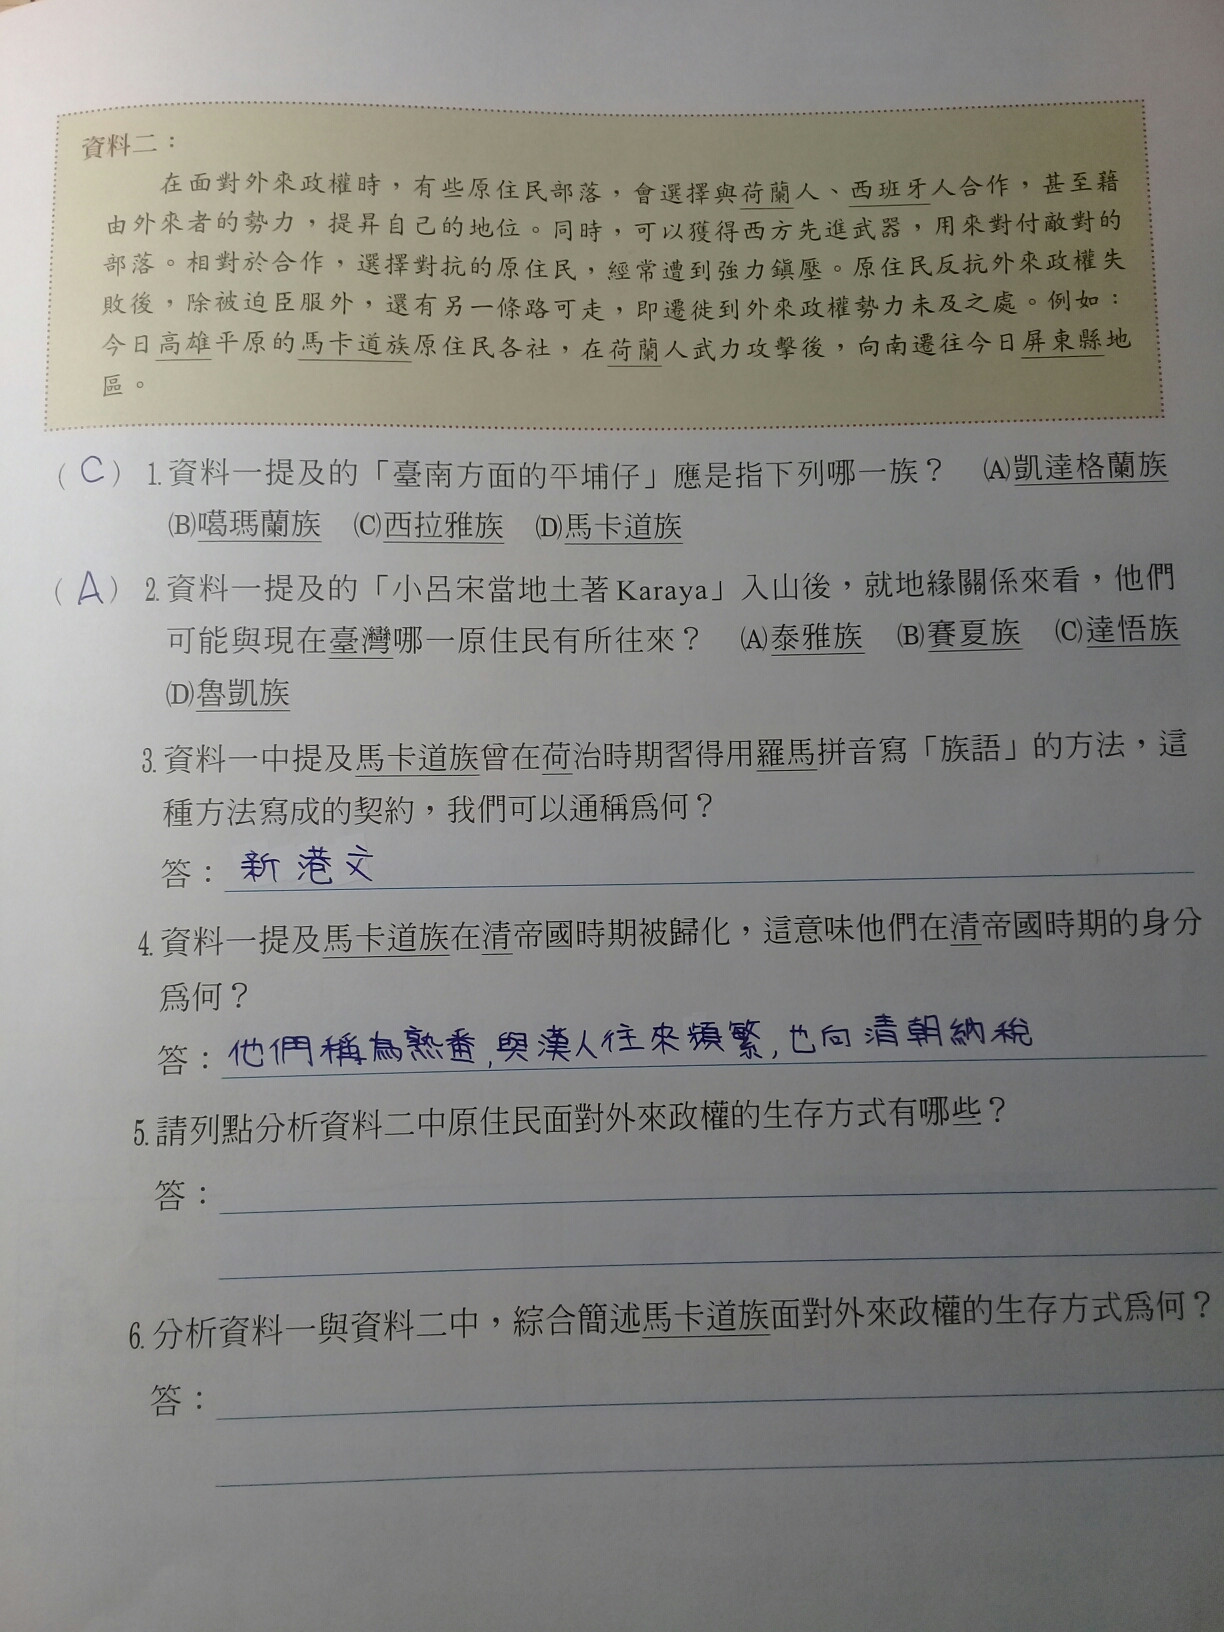 資料二：
在面對外來政權時，有些原住民部落，會選擇與荷蘭人、西班牙人合作，甚至藉
由外來者的勢力，提昇自己的地位。同時，可以獲得西方先進武器，用來對付敵對的
部落。相對於合作，選擇對抗的原住民，經常遭到強力鎮壓。原住民反抗外來政權失
敗後，除被迫臣服外，還有另一條路可走，即遷徙到外來政權勢力未及之處。例如：
今日高雄平原的馬卡道族原住民各社，在荷蘭人武力攻擊後，向南遷往今日屏東縣地
區。
（C）1.資料一提及的「臺南方面的平埔仔」應是指下列哪一族？ (A)凱達格蘭族
(B)噶瑪蘭族 (C)西拉雅族 (D)馬卡道族
（A）2.資料一提及的「小呂宋當地土著Karaya」入山後，就地緣關係來看，他們
可能與現在臺灣哪一原住民有所往來？ (A)泰雅族 (B)賽夏族 (C)達悟族
(D)魯凱族
3.資料一中提及馬卡道族曾在荷治時期習得用羅馬拼音寫「族語」的方法，這
種方法寫成的契約，我們可以通稱為何？
答：新港文
4.資料一提及馬卡道族在清帝國時期被歸化，這意味他們在清帝國時期的身分
為何？
答：他們稱為熟番,與漢人往來頻繁,也向清朝納稅
5.請列點分析資料二中原住民面對外來政權的生存方式有哪些？
答：
6.分析資料一與資料二中，綜合簡述馬卡道族面對外來政權的生存方式為何？
答：